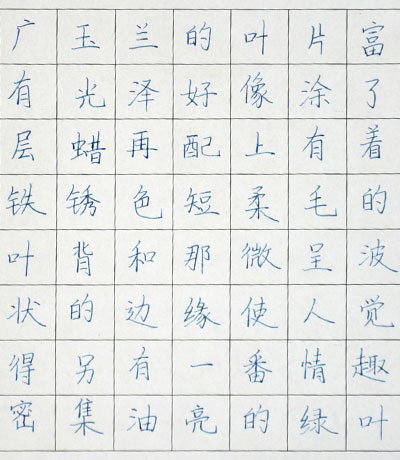 广玉兰的叶片富
有光泽好像涂了
层蜡再配上有着
铁锈色短柔毛的
叶背和那微呈波
状的边缘使人觉
得另有一番情趣
密集油亮的绿叶